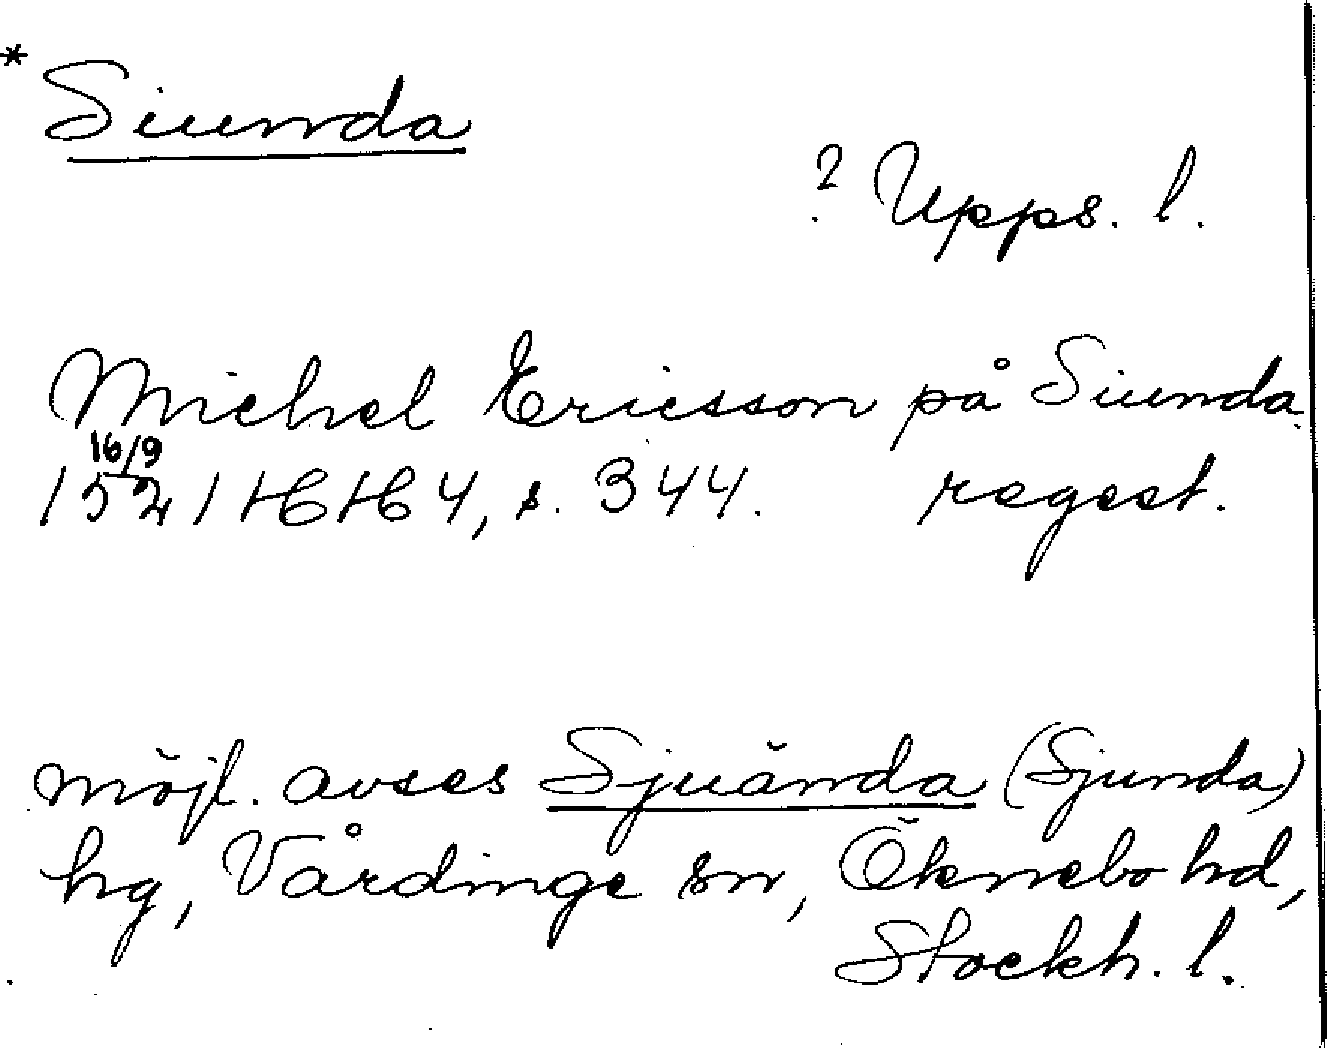 * Siunda
? Upps. l.
Michel Ericsson på Siunda
16/9
1521 HH 4, s. 344. regest.
möjl. avses Sjuända (Sjunda)
hg, Vårdinge sn, Öknebo hd,
Stockh. l.